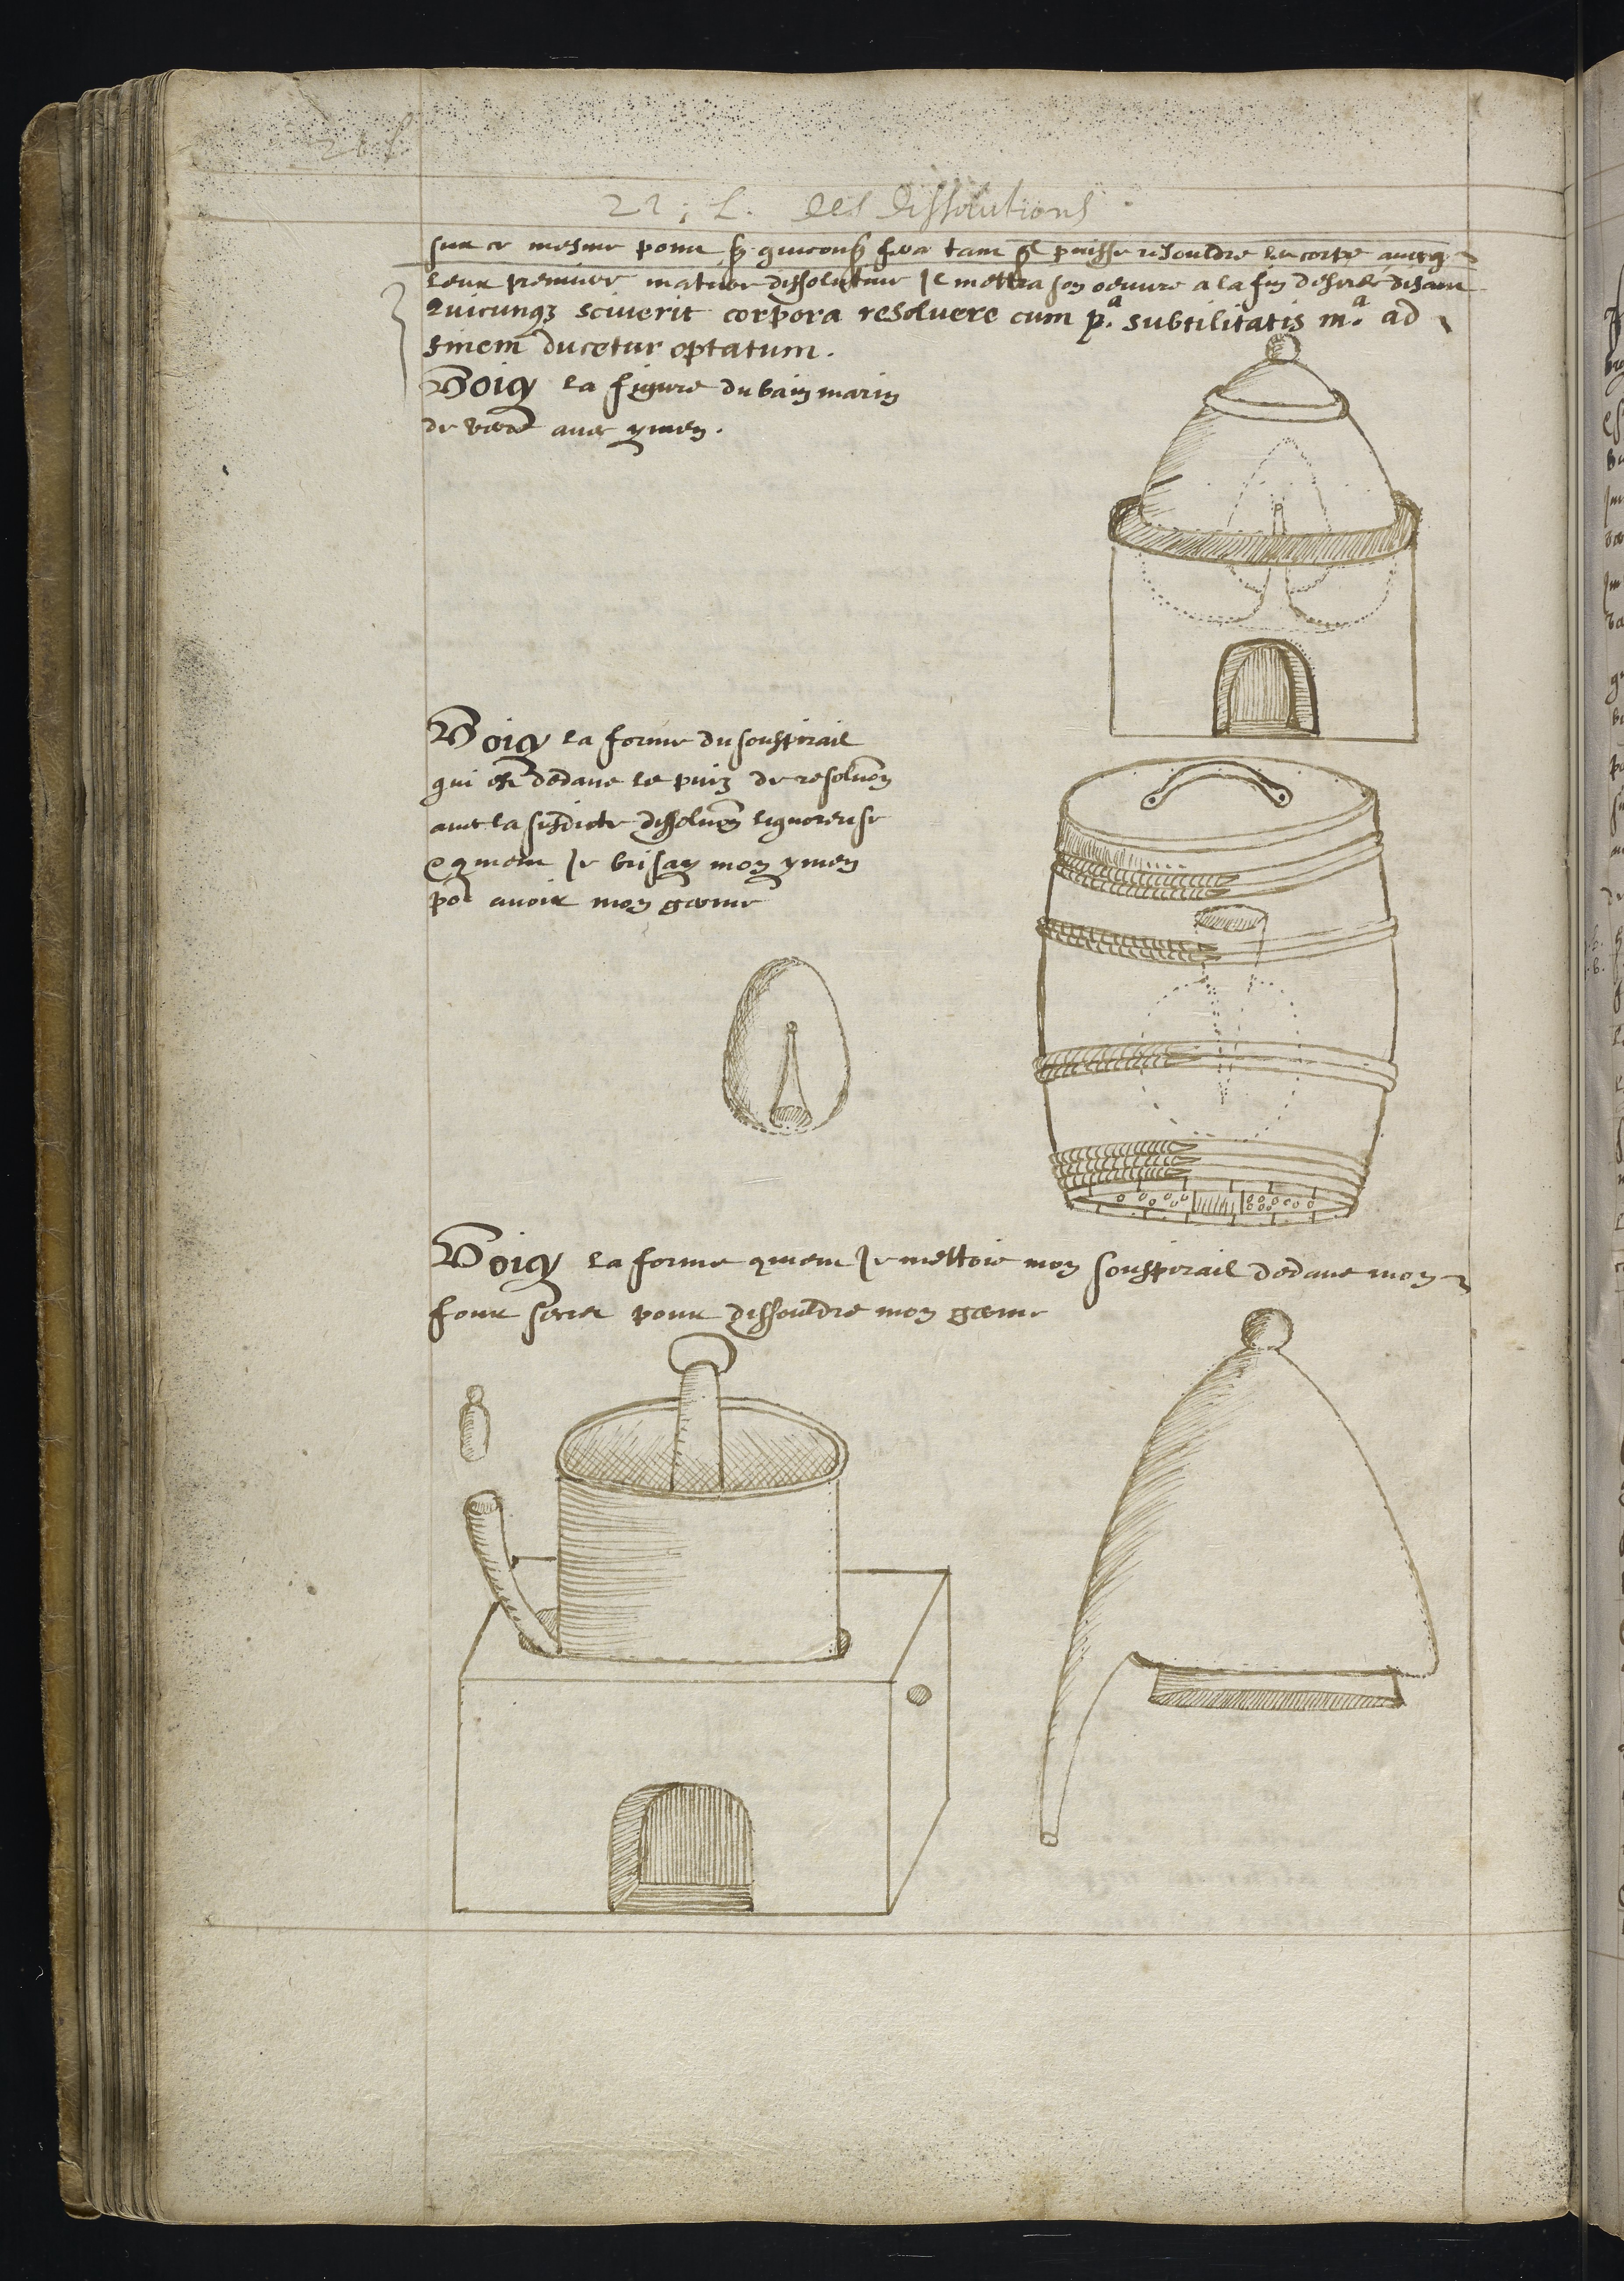 22 ; L. des dissolutions
sur ce mesme point quiconq fera tant ql puisse resouldre le corps avecq
leur premiere matiere dissolutive Il mettra son oeuvre a la fin desiree disant
Quicunqz sciverit corpora resolvere cum p.a subtilitatis m.a ad
finem ducetur optatum.
Voicy la figure du bain marin
de verre avec ymen.
Voicy la forme du souspirail
qui est dedans le puiz de resolu͠on
avec la susdicte dissolu͠on liquoreuse
comem Je brisay mon ymen
po.r avoir mon germe
Voicy la forme comem Je mettois mon souspirail dedans mon
four secret pour dissouldre mon germe